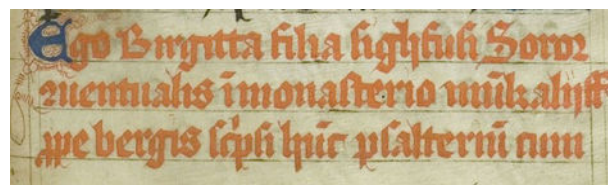 Ego Birgitta filia sighfusi Soror
ꝯuentualis ī monasterio mūkalijff
ꝓpe bergis sc̄psi hūc psalteriū cum